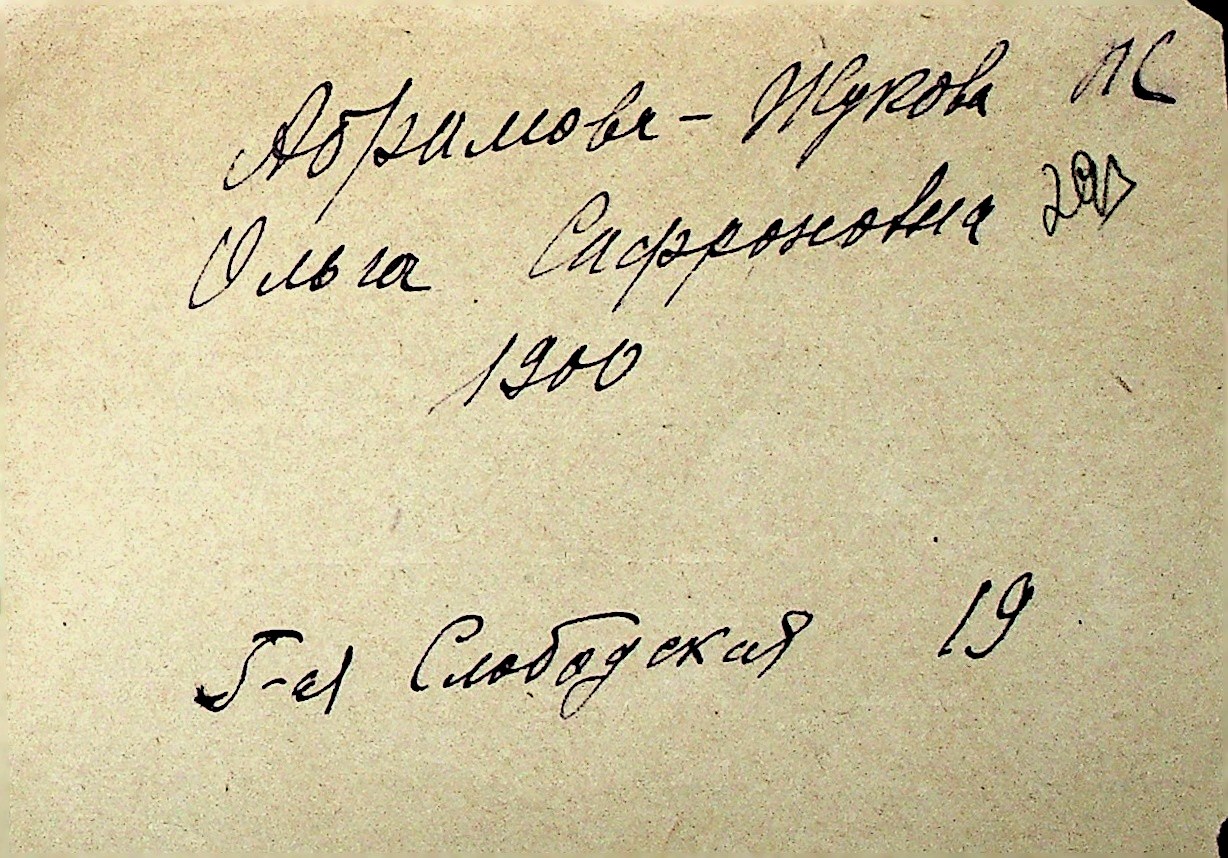 Абрамова - Жукова ПС
Ольга Сафроновна
1900
5-ая Слободская 19